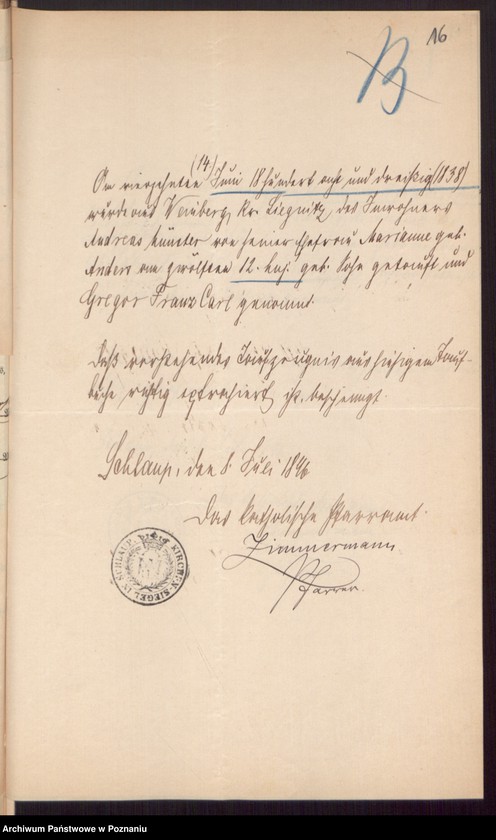 16
B
Am vierzehnten (14) Juni 18 hundert acht und dreißig (1838)
wurde aus kr. Liegnitz, des Inwohners
Andreas von seiner Ehefrau Marianne geb.
Anders am zwölften 12. huj. geb. Sohn getauft und
Gregor Franz Carl genannt.
Daß vorstehendes Taufzeugnis aus hiesigem Tauf-
buche richtig extrahiert ist, bescheinigt.
Schlaup, den 8. Juli 1896
Das katholische Pfarramt.
Zimmermann
Pfarrer.
KIRCHEN-SIEGEL IN SCHLAUP
Archiwum Państwowe w Poznaniu